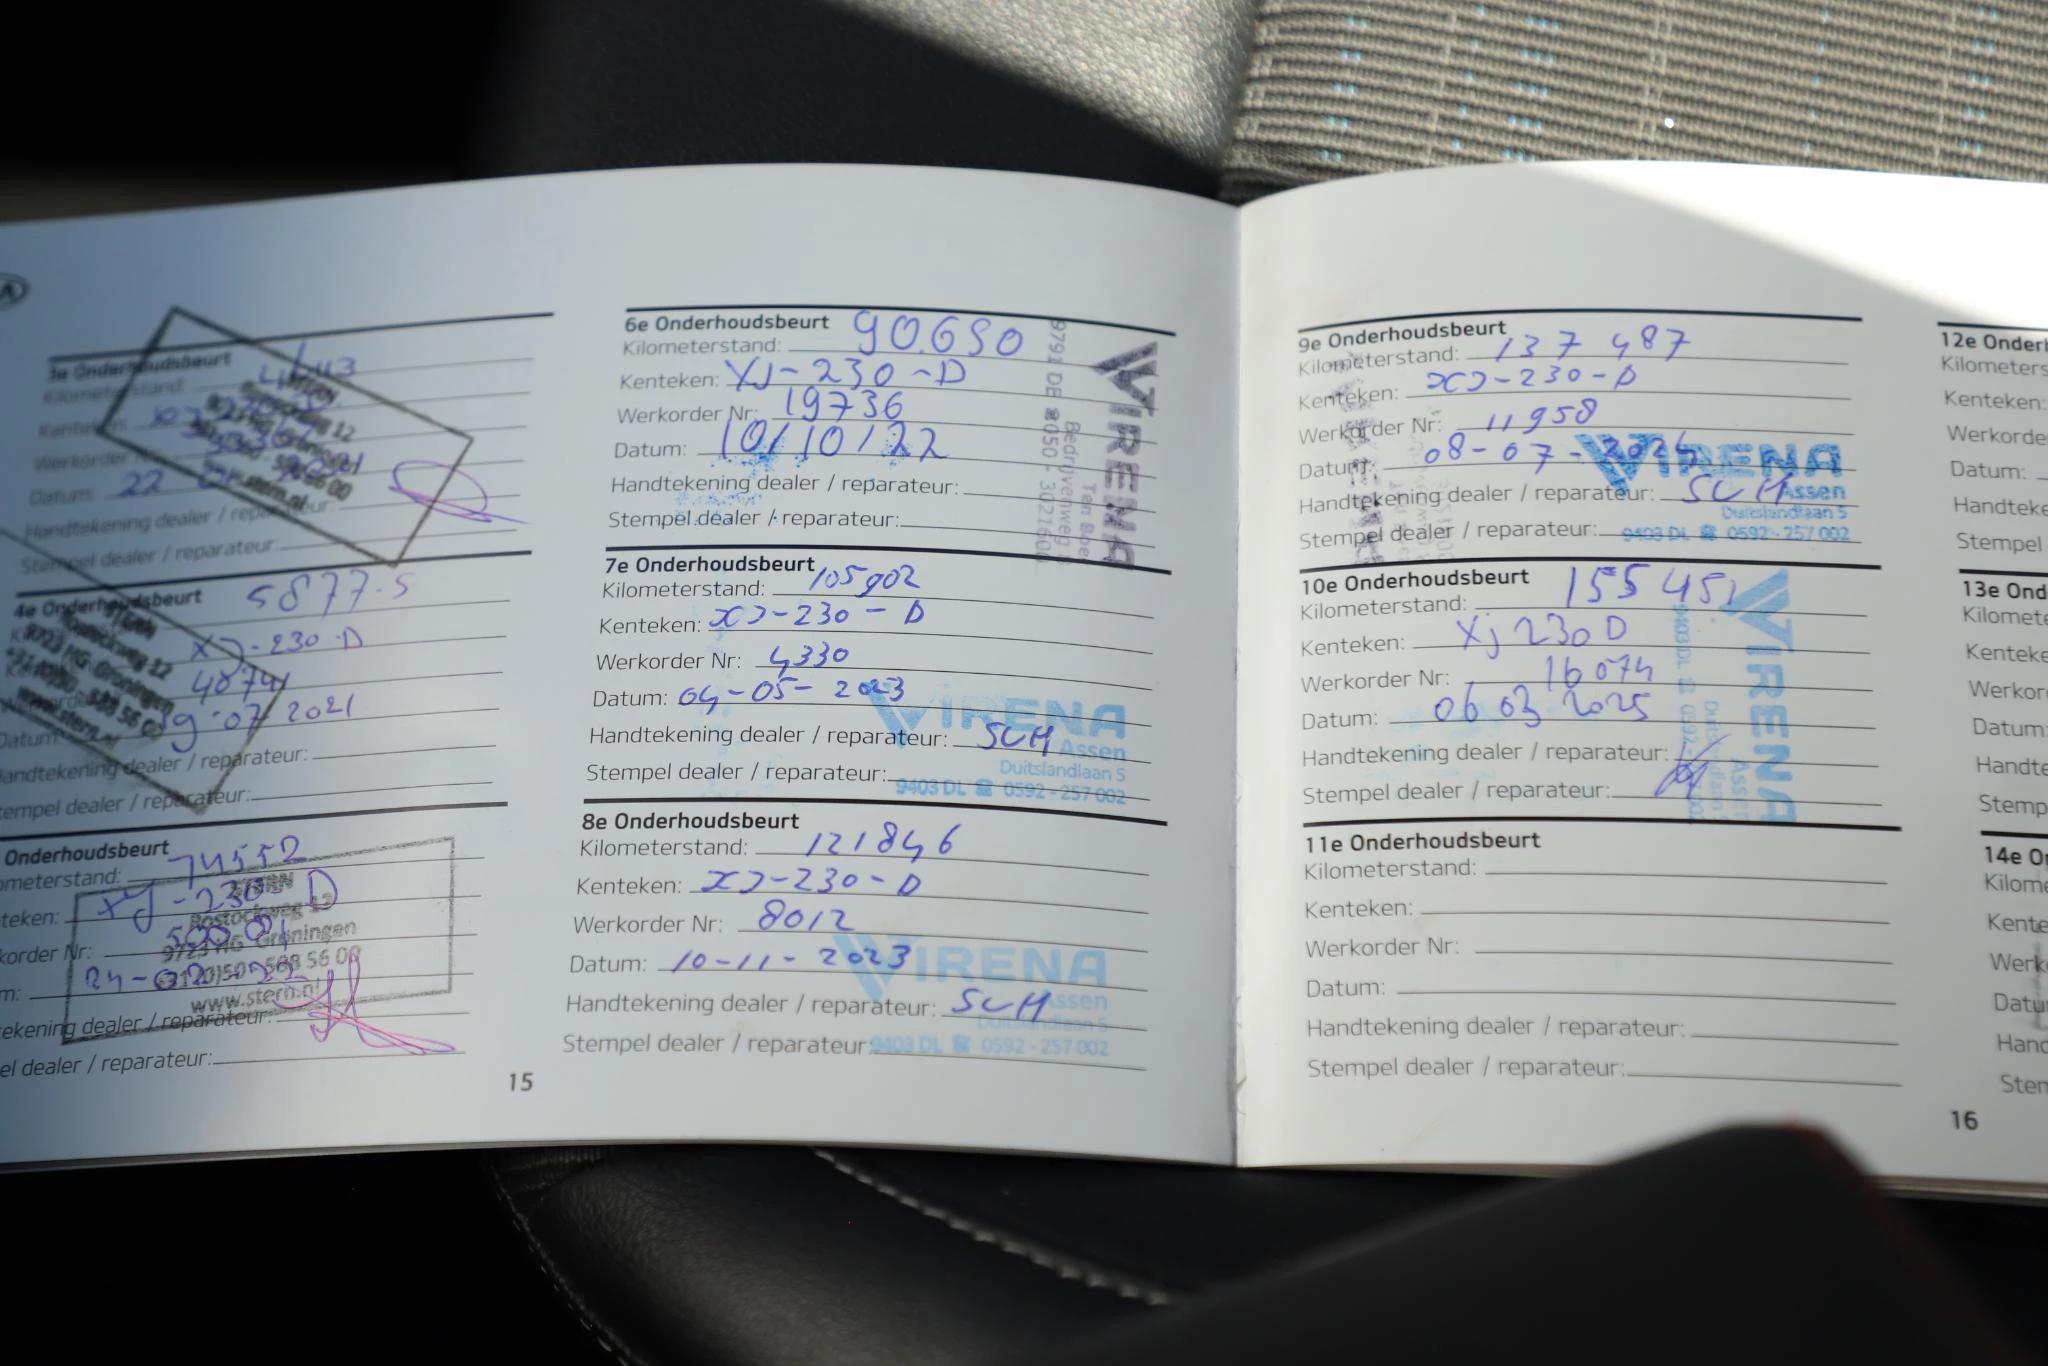 3e Onderhoudsbeurt
Kilometerstand:
Kenteken:
Werkorder Nr:
Datum: 22
Handtekening dealer / reparateur:
Stempel dealer / reparateur:
4e Onderhoudsbeurt
58775
XJ-230-D
4874
Datum: 19-07-2021
Handtekening dealer / reparateur:
Stempel dealer / reparateur:
STERN
Rostockweg 12
9723 HG Groningen
www.stern.nl
Onderhoudsbeurt
ometerstand: 74552
teken: XJ-230-D
korder Nr:
m: 24-02-22
tekening dealer / reparateur:
el dealer / reparateur:
STERN
Rostockweg 12
9723 HG Groningen
www.stern.nl
15
6e Onderhoudsbeurt
Kilometerstand: 90.650
Kenteken: XJ-230-D
Werkorder Nr: 19736
Datum: 10/10/22
Handtekening dealer / reparateur:
Stempel dealer / reparateur:
VIRENA
Ten Boer
Bedrijvenweg
9791 DE ☎ 050 - 302160
7e Onderhoudsbeurt
Kilometerstand: 105902
Kenteken: XJ-230-D
Werkorder Nr: 4330
Datum: 04-05-2023
Handtekening dealer / reparateur: SCH
Stempel dealer / reparateur:
VIRENA
Assen
Duitslandlaan 5
9403 DL ☎ 0592 - 257 002
8e Onderhoudsbeurt
Kilometerstand: 121846
Kenteken: XJ-230-D
Werkorder Nr: 8012
Datum: 10-11-2023
Handtekening dealer / reparateur: SCH
Stempel dealer / reparateur:
VIRENA
Assen
Duitslandlaan 5
9403 DL ☎ 0592 - 257 002
9e Onderhoudsbeurt
Kilometerstand: 137 487
Kenteken: XJ-230-D
Werkorder Nr: 11958
Datum: 08-07-2024
Handtekening dealer / reparateur: SCH
Stempel dealer / reparateur:
VIRENA
Assen
Duitslandlaan 5
9403 DL ☎ 0592 - 257 002
10e Onderhoudsbeurt
Kilometerstand: 155 451
Kenteken: XJ 230 D
Werkorder Nr: 16074
Datum: 06 03 2025
Handtekening dealer / reparateur:
Stempel dealer / reparateur:
VIRENA
Assen
Duitslandlaan
9403 DL ☎ 0592
11e Onderhoudsbeurt
Kilometerstand:
Kenteken:
Werkorder Nr:
Datum:
Handtekening dealer / reparateur:
Stempel dealer / reparateur:
12e Onderh
Kilometers
Kenteken:
Werkorde
Datum:
Handteke
Stempel
13e Ond
Kilomete
Kenteke
Werkor
Datum:
Handte
Stemp
14e O
Kilome
Kente
Werk
Datu
Hand
Sten
16